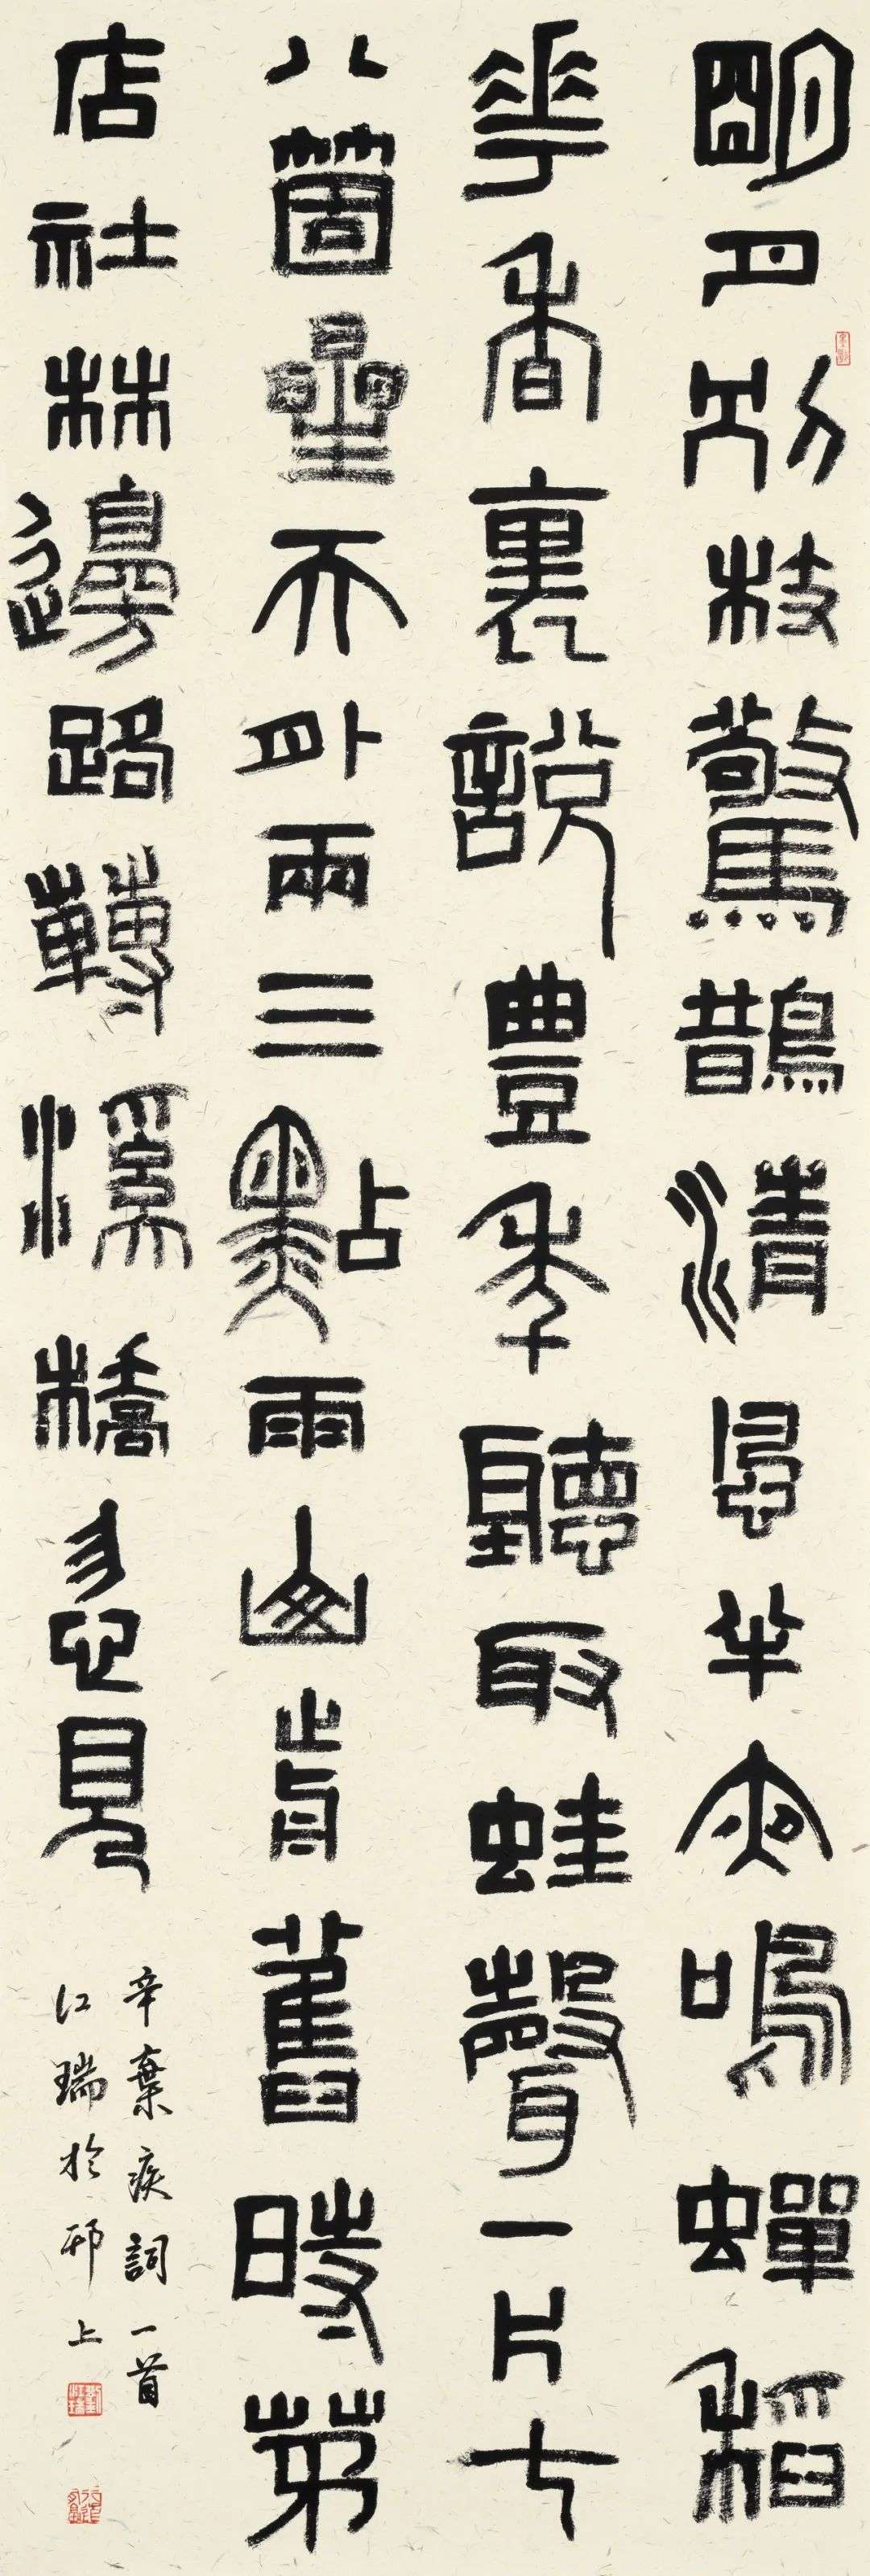 明月別枝驚鵲清風半夜鳴蟬稻
華香裏說豐年聽取蛙聲一片七
八箇星天外兩三點雨山前舊時茅
店社林邊路轉溪橋忽見
辛棄疾詞一首
江瑞於邗上